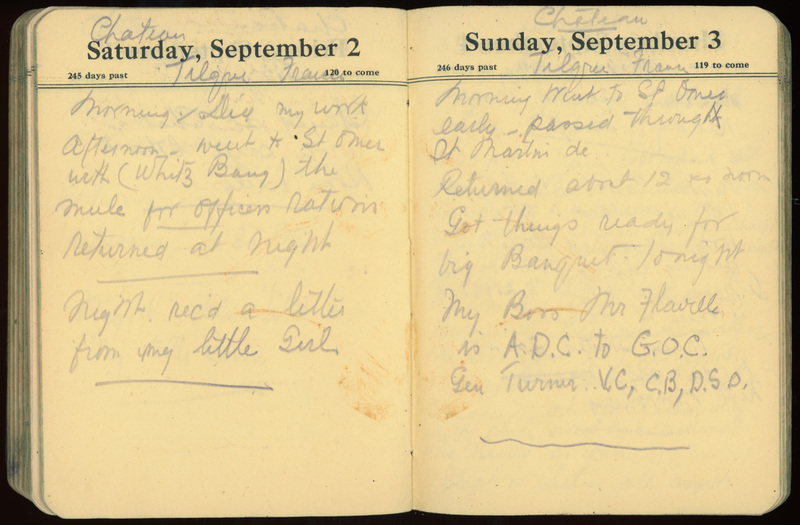 Chateau
Saturday, September 2
245 days past 120 to come
Tilques France
Morning. Did my work
Afternoon - went to St Omer
with (Whitz Bang) the
mule for officers rations
returned at night
Night. rec'd a letter
from my little Girl
Chateau
Sunday, September 3
246 days past 119 to come
Tilques France
Morning Went to St Omer
early - passed through
St Martin de
Returned about 12 noon
Got things ready for
big Banquet. tonight
My Boss Mr Flavelle
is A.D.C. to G.O.C.
Gen Turner. V.C, C.B, D.S.O.